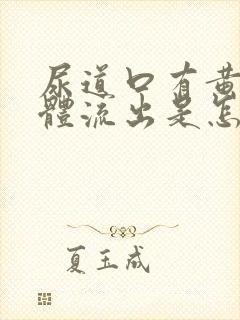 尿道口有黄
體流出是怎
夏玉成